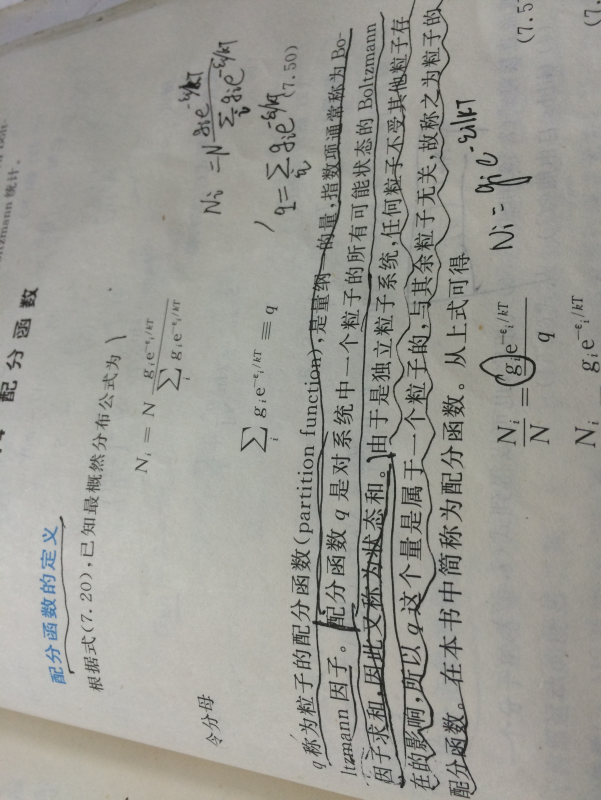 ltzmann 统计.
配分函数
配分函数的定义
根据式(7.20),已知最概然分布公式为
N_i = N g_i e^{-ε_i/kT} / \sum_i g_i e^{-ε_i/kT}
Ni = N gie^{-εi/kT} / \sum_i gie^{-εi/kT}
令分母
\sum_i g_i e^{-ε_i/kT} ≡ q
q = \sum_i gie^{-εi/kT}
(7.50)
q 称为粒子的配分函数(partition function),是量纲一的量,指数项通常称为 Bo-
ltzmann 因子。配分函数 q 是对系统中一个粒子的所有可能状态的 Boltzmann
因子求和,因此又称为状态和。由于是独立粒子系统,任何粒子不受其他粒子存
在的影响,所以 q 这个量是属于一个粒子的,与其余粒子无关,故称之为粒子的
配分函数。在本书中简称为配分函数。从上式可得
N_i / N = g_i e^{-ε_i/kT} / q
Ni = gie^{-εi/kT}
(7.5
N_i g_i e^{-ε_i/kT}
(7.